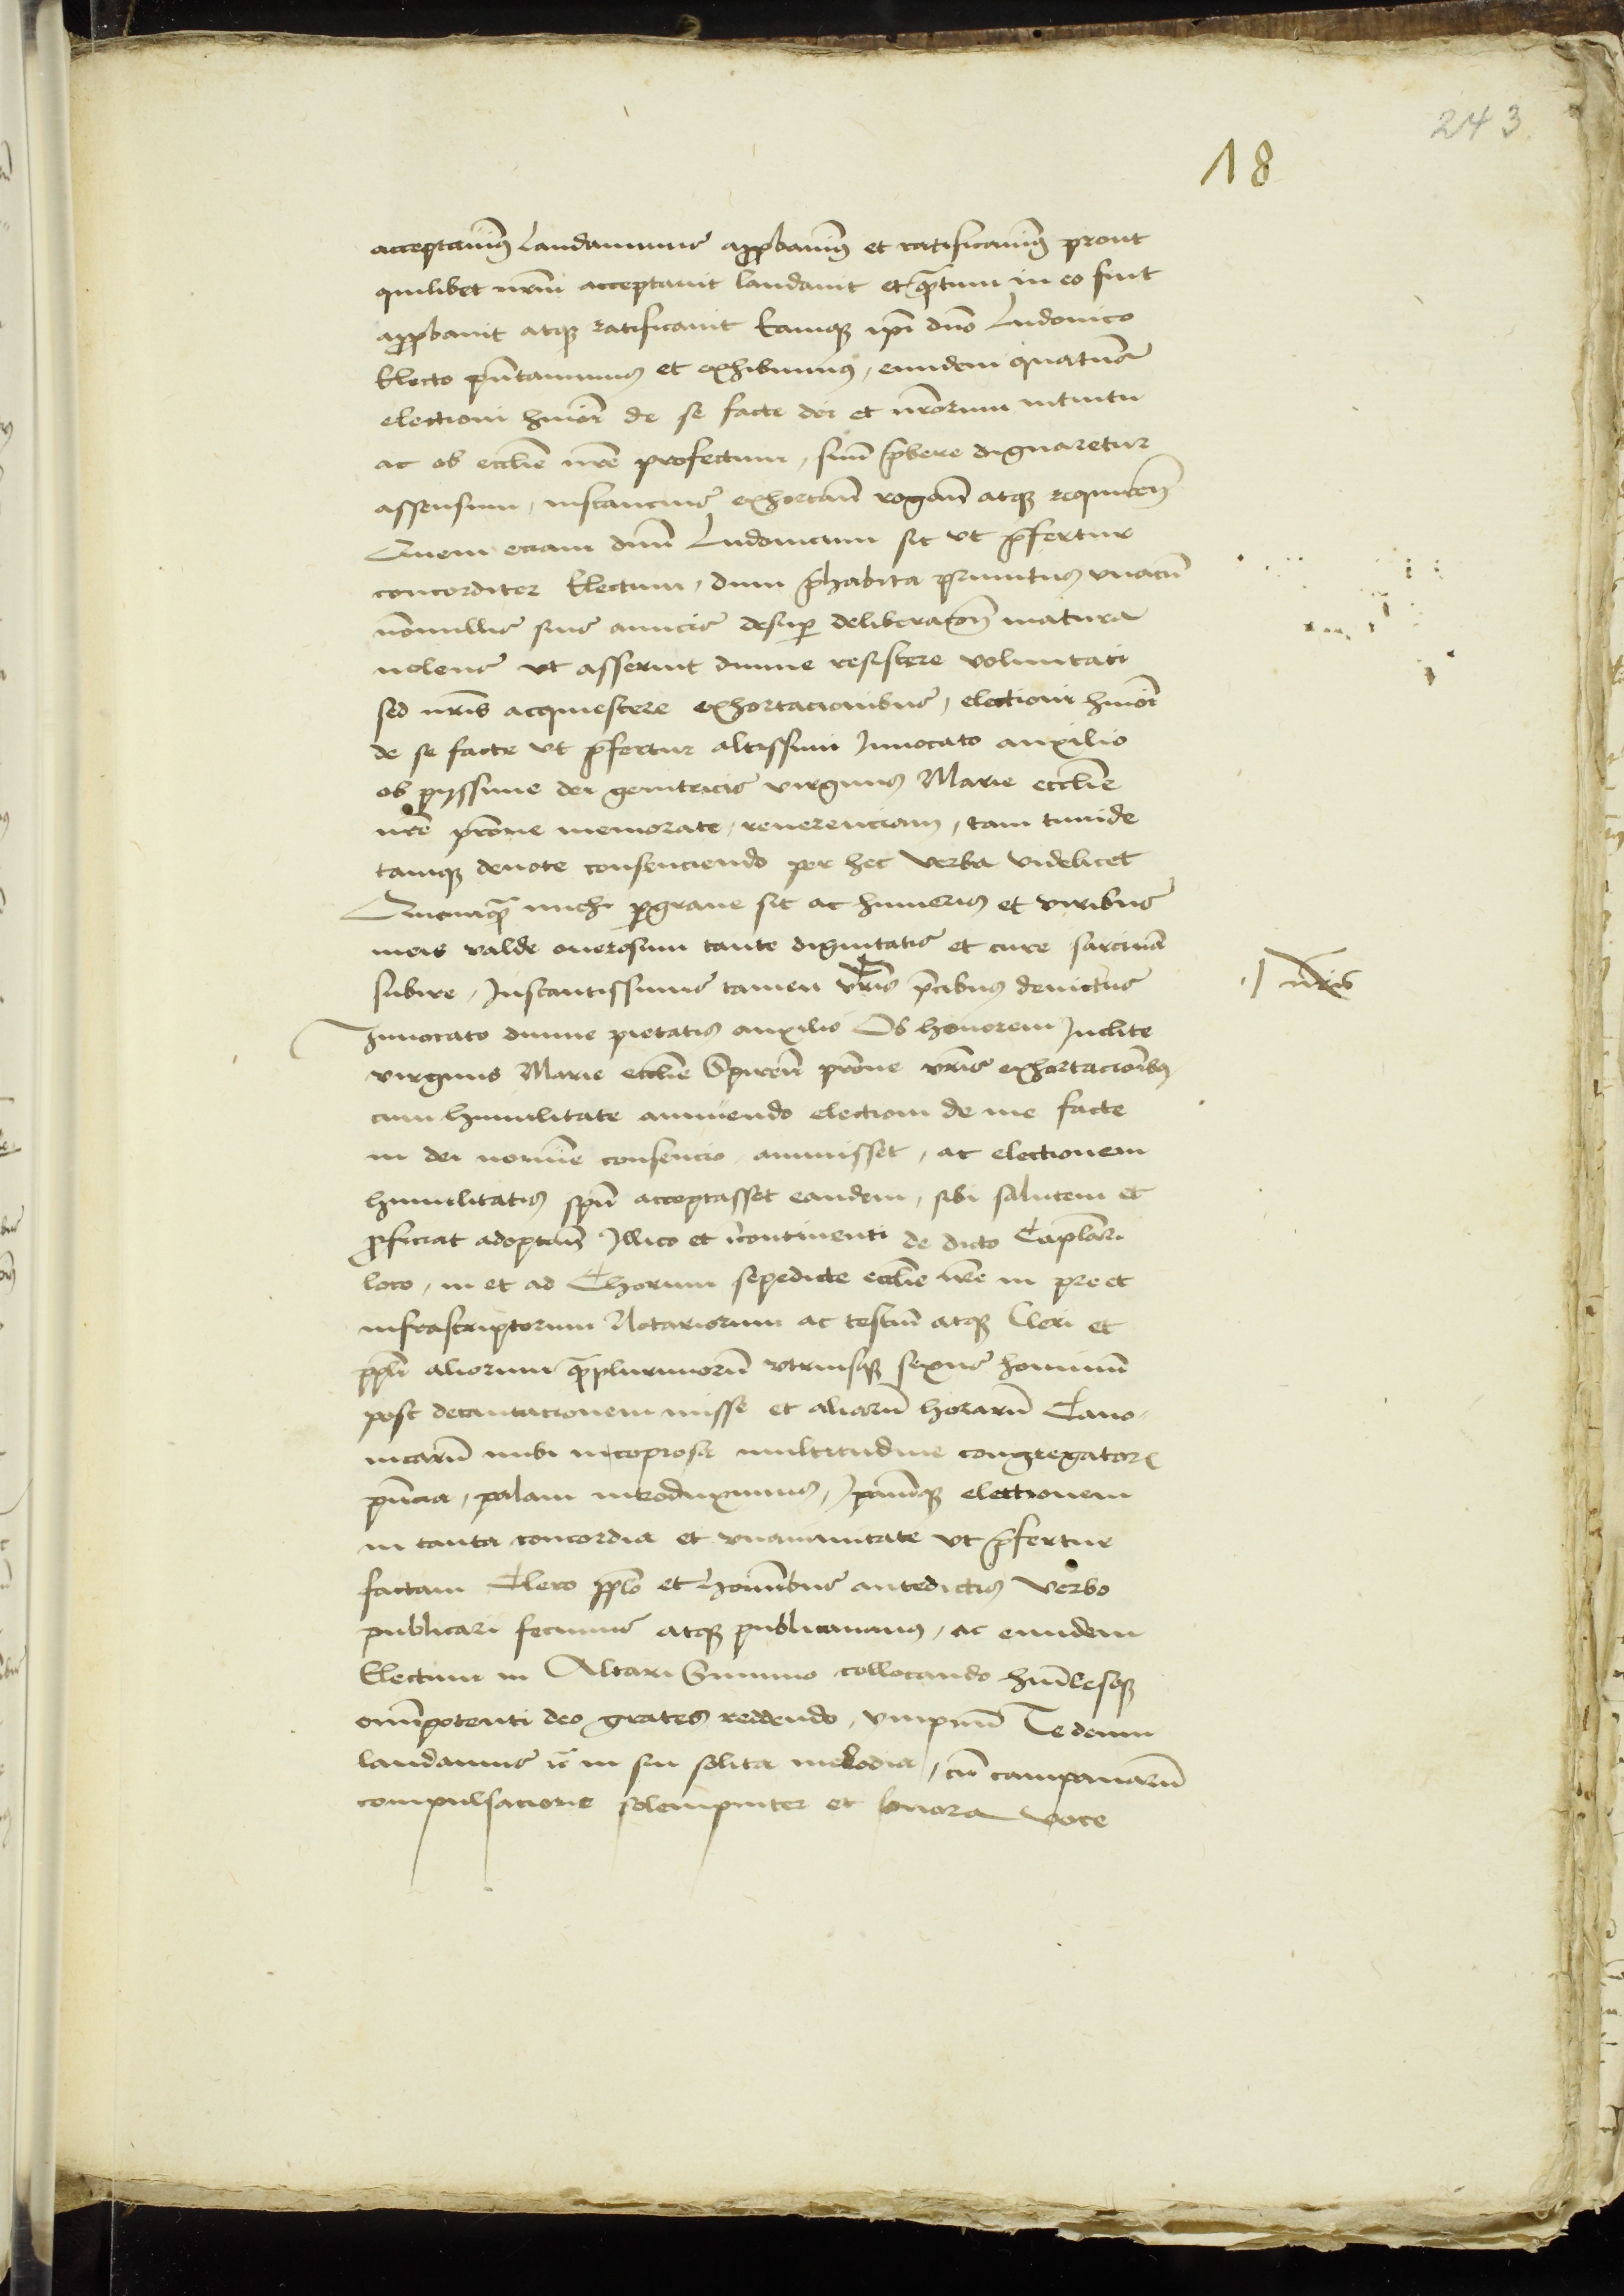 243
18
acceptauimꝰ Laudauimus app̱bauimꝰ et ratificauimꝰ prout
quilibet nr̄m acceptauit laudauit et qͣntum in eo fuit
app̱bauit atqꝫ ratificauit Eamqꝫ ip̄i dn̄o Ludouico
Electo pn̄tauimus et exhibuimus, eundem quatinꝰ
electioni hmōi de se facte dei et nr̄orum intuitu
ac ob eccl̄ie nr̄e profectum, suū p̄bere dignaretur
assensum, instancius exhortan̄ rogan̄ atqꝫ requiren̄
Quem eciam dn̄m Ludouicum sic vt p̄fertur
concorditer Electum, dum p̄habita primitus vnacū
nōnullis suis amicis desup̱ deliberacōn̄ matura
nolens vt asseruit diuine resistere voluntati
sed nr̄is acquiescere exhortacionibus, electioni hmōi
de se facte vt p̄fertur altissimi Inuocato auxilio
ob pyssime dei genitricis virginis Marie eccl̄ie
nr̄e pr̄one memorate, reuerenciam, tam timide
tamqꝫ deuote consenciendo per hec verba videlicet
Quamqͣ michi p̱graue sit ac humeris et viribus
meis valde onerosum tante dignitatis et cure sarcinā
subire, Instantissimis tamen vr̄is p̄cibus deuictus
nr̄is
Inuocato diuine pietatis auxilio Ob honorem Inclite
virginis Marie eccl̄ie Spiren̄ pr̄one vr̄is exhortacionibꝰ
cum humilitate annuendo electioni de me facte
in dei nomīe consencio, annuisset, ac electionem
humilitatis sp̄u acceptasset eandem, sibi salutem et
p̱ficiat adoptan̄ Illico et incontinenti de dicto Capl̄ari
loco, in et ad Chorum sepedicte eccl̄ie nr̄e in pre et
infrascriptorum Notariorum ac testiū atqꝫ Cleri et
pp̄li aliorum qͣmplurimorū vtriusqꝫ sexus hominū
post decantacionem misse et aliarū horarū Cano-
nicarū inibi in copiosa multitudine congregatorꝝ
pn̄cia, palam introduximus, Ipamqꝫ electionem
in tanta concordia et vnanimitate vt p̄fertur
factam Clero pp̄lo et hominibus antedictis verbo
publicari fecimus atqꝫ publicauimus, ac eundem
Electum in Altari Summo collocando humīlesqꝫ
omīpotenti deo grates reddendo, ympnū Te deum
laudamus ꝛc̄ in sui solita melodia, cū campanarū
compulsacione solempniter et sonora voce